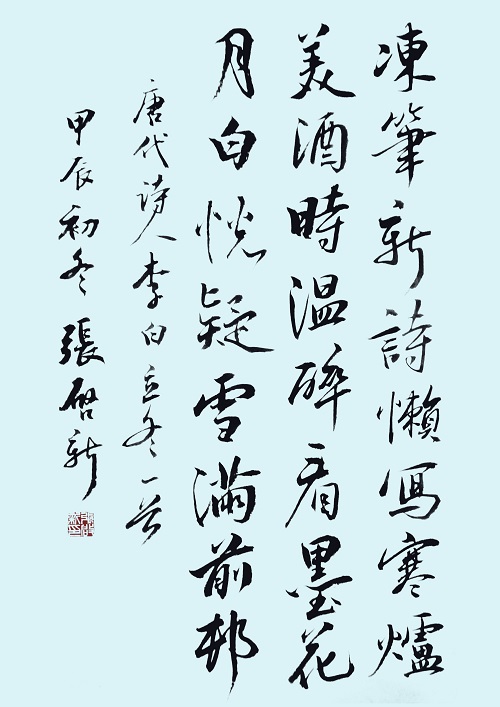 凍筆新詩懶寫寒爐
美酒時温醉看墨花
月白恍疑雪滿前邨
唐代詩人李白立冬一首
甲辰初冬張啓新